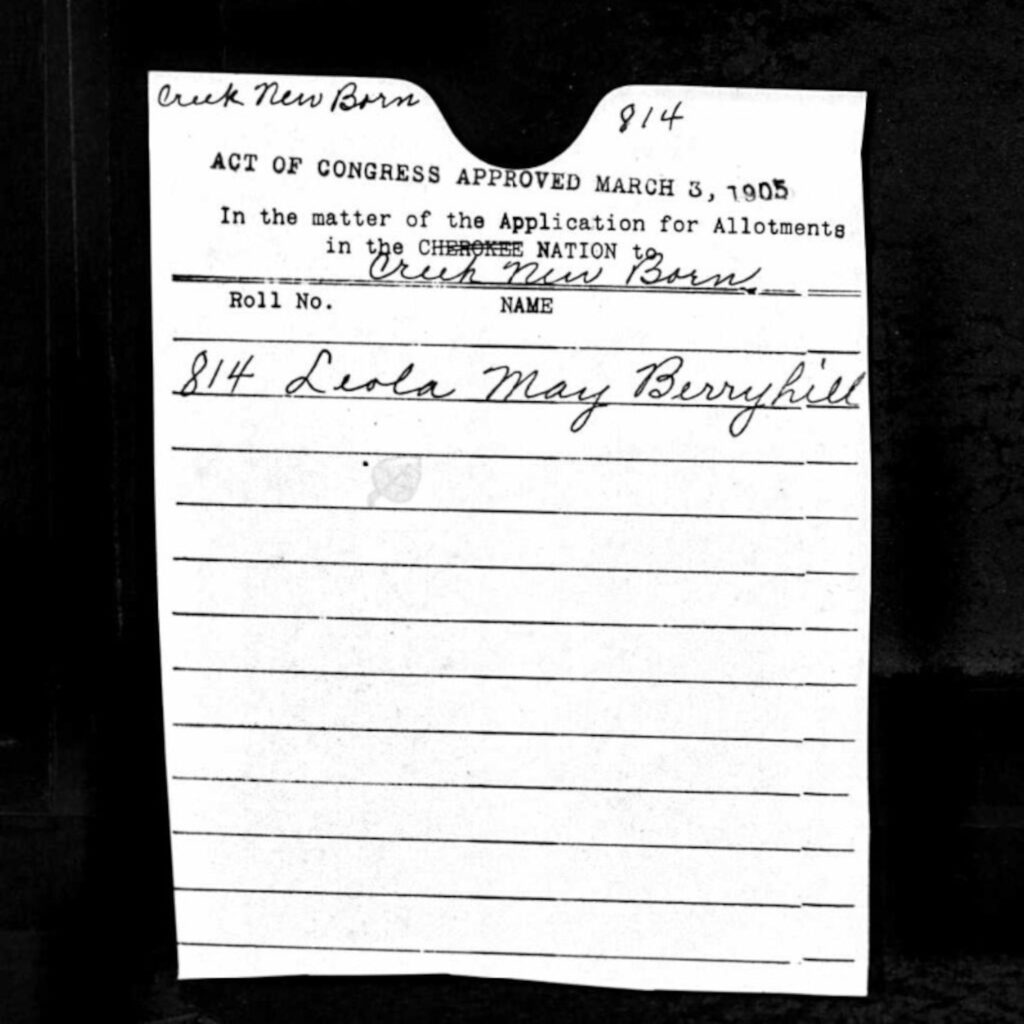 Creek New Born
814
ACT OF CONGRESS APPROVED MARCH 3, 1905
In the matter of the Application for Allotments
in the CHEROKEE NATION to
Creek New Born.
Roll No. NAME
814 Leola May Berryhill